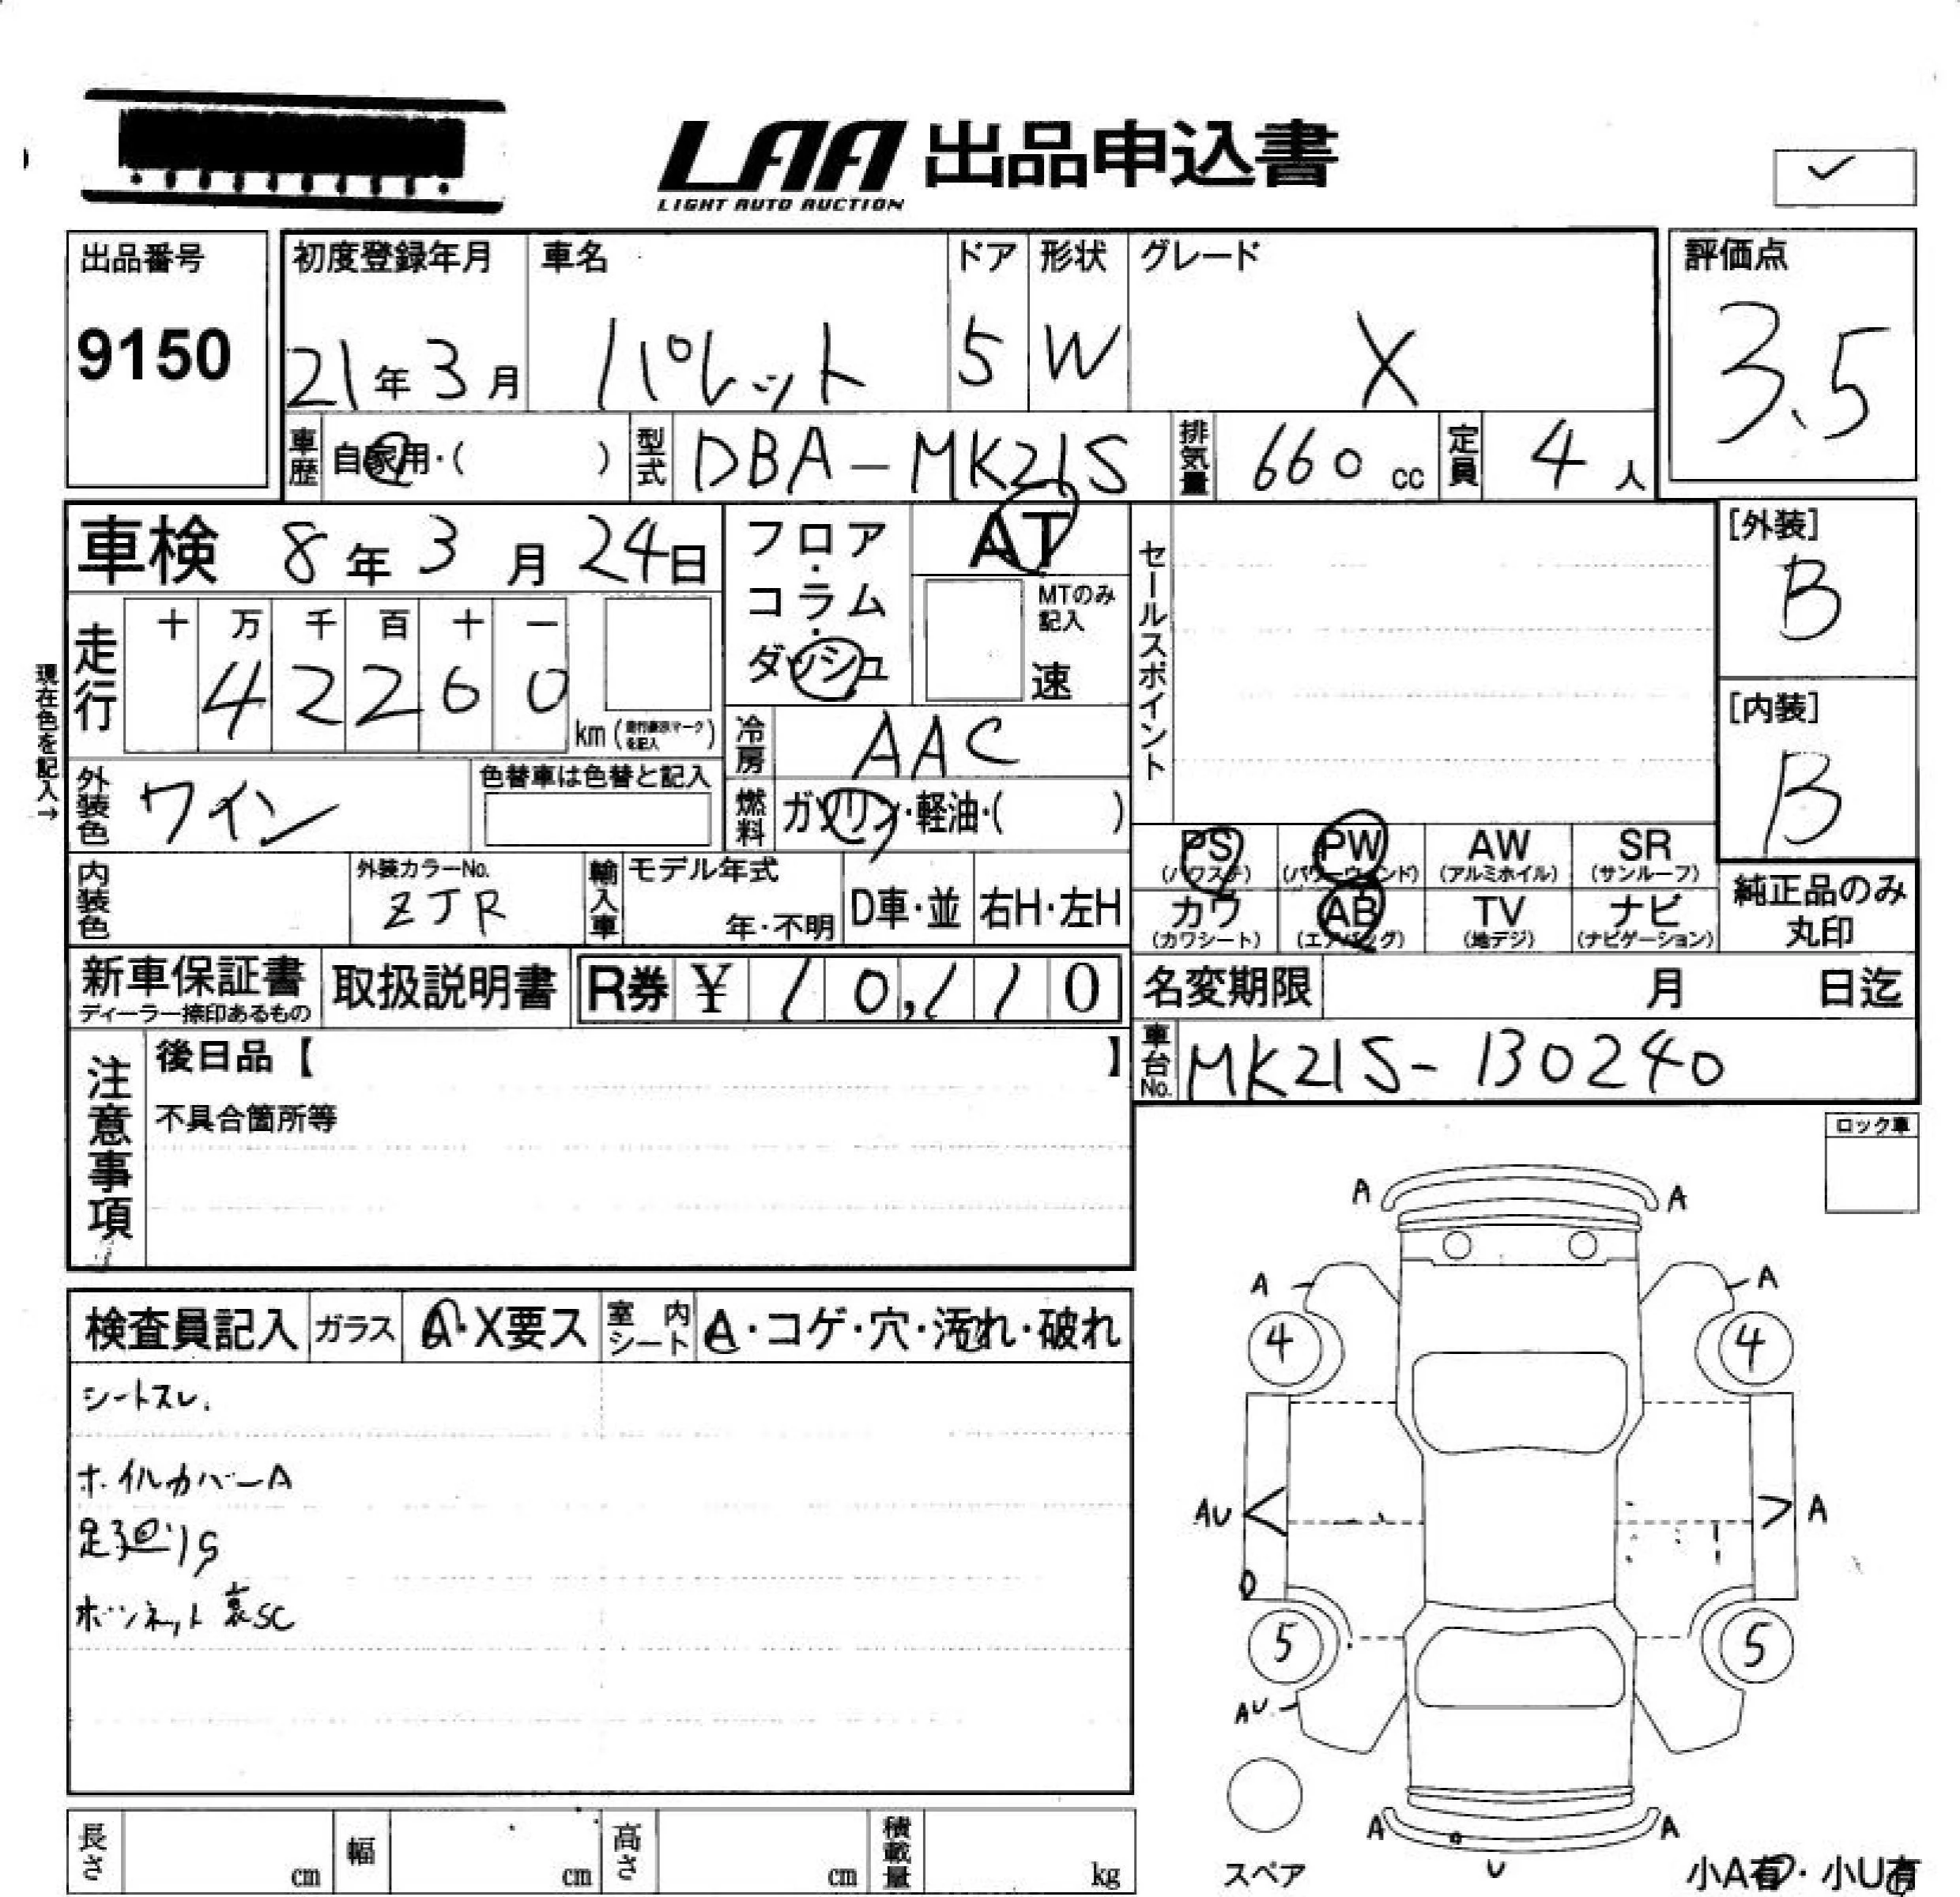 LAA 出品申込書
LIGHT AUTO AUCTION
✓
出品番号
9150
初度登録年月 車名 ドア 形状 グレード
21年3月 パレット 5 W X
評価点
3.5
車歴 自家用・( ) 型式 DBA-MK21S 排気量 660cc 定員 4人
車検 8年3月24日
フロア・コラム・ダッシュ
AT
MTのみ記入
速
セールスポイント
[外装]
B
[内装]
B
現在色を記入→
走行 十 万 千 百 十 一
4 2 2 6 0
km (走行要示マークを記入)
冷房 AAC
外装色 ワイン 色替車は色替と記入
燃料 ガソリン・軽油・( )
内装色 外装カラーNo. ZJR
輸入車 モデル年式 年・不明 D車・並 右H・左H
PS (パワステ) PW (パワーウィンド) AW (アルミホイル) SR (サンルーフ)
カワ (カワシート) AB (エアバッグ) TV (地デジ) ナビ (ナビゲーション)
純正品のみ丸印
新車保証書 ディーラー捺印あるもの 取扱説明書 R券 ¥ 10,110
名変期限 月 日迄
車台No. MK21S-130240
注意事項
後日品【 】
不具合箇所等
ロック車
検査員記入 ガラス A・X要ス 室内シート A・コゲ・穴・汚れ・破れ
シートスレ.
ホイルカバーA
足廻りS
ボンネット裏SC
A A
A A
4 4
AU A
5 5
AU
A A
U
スペア
小A有・小U有
長さ cm 幅 cm 高さ cm 積載量 kg